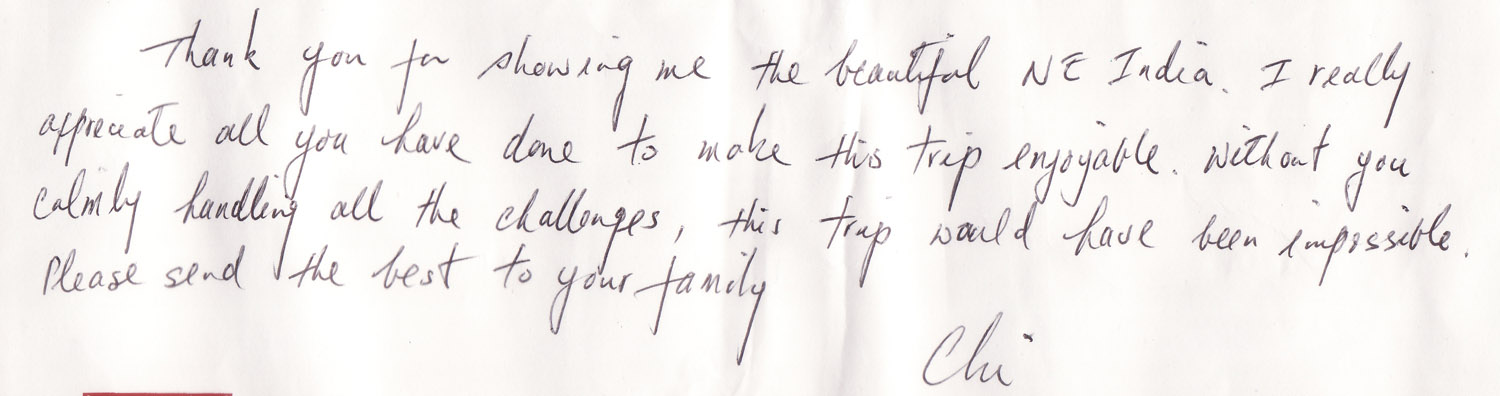 Thank you for showing me the beautiful NE India. I really
appreciate all you have done to make this trip enjoyable. Without you
calmly handling all the challenges, this trip would have been impossible.
Please send the best to your family
Chi